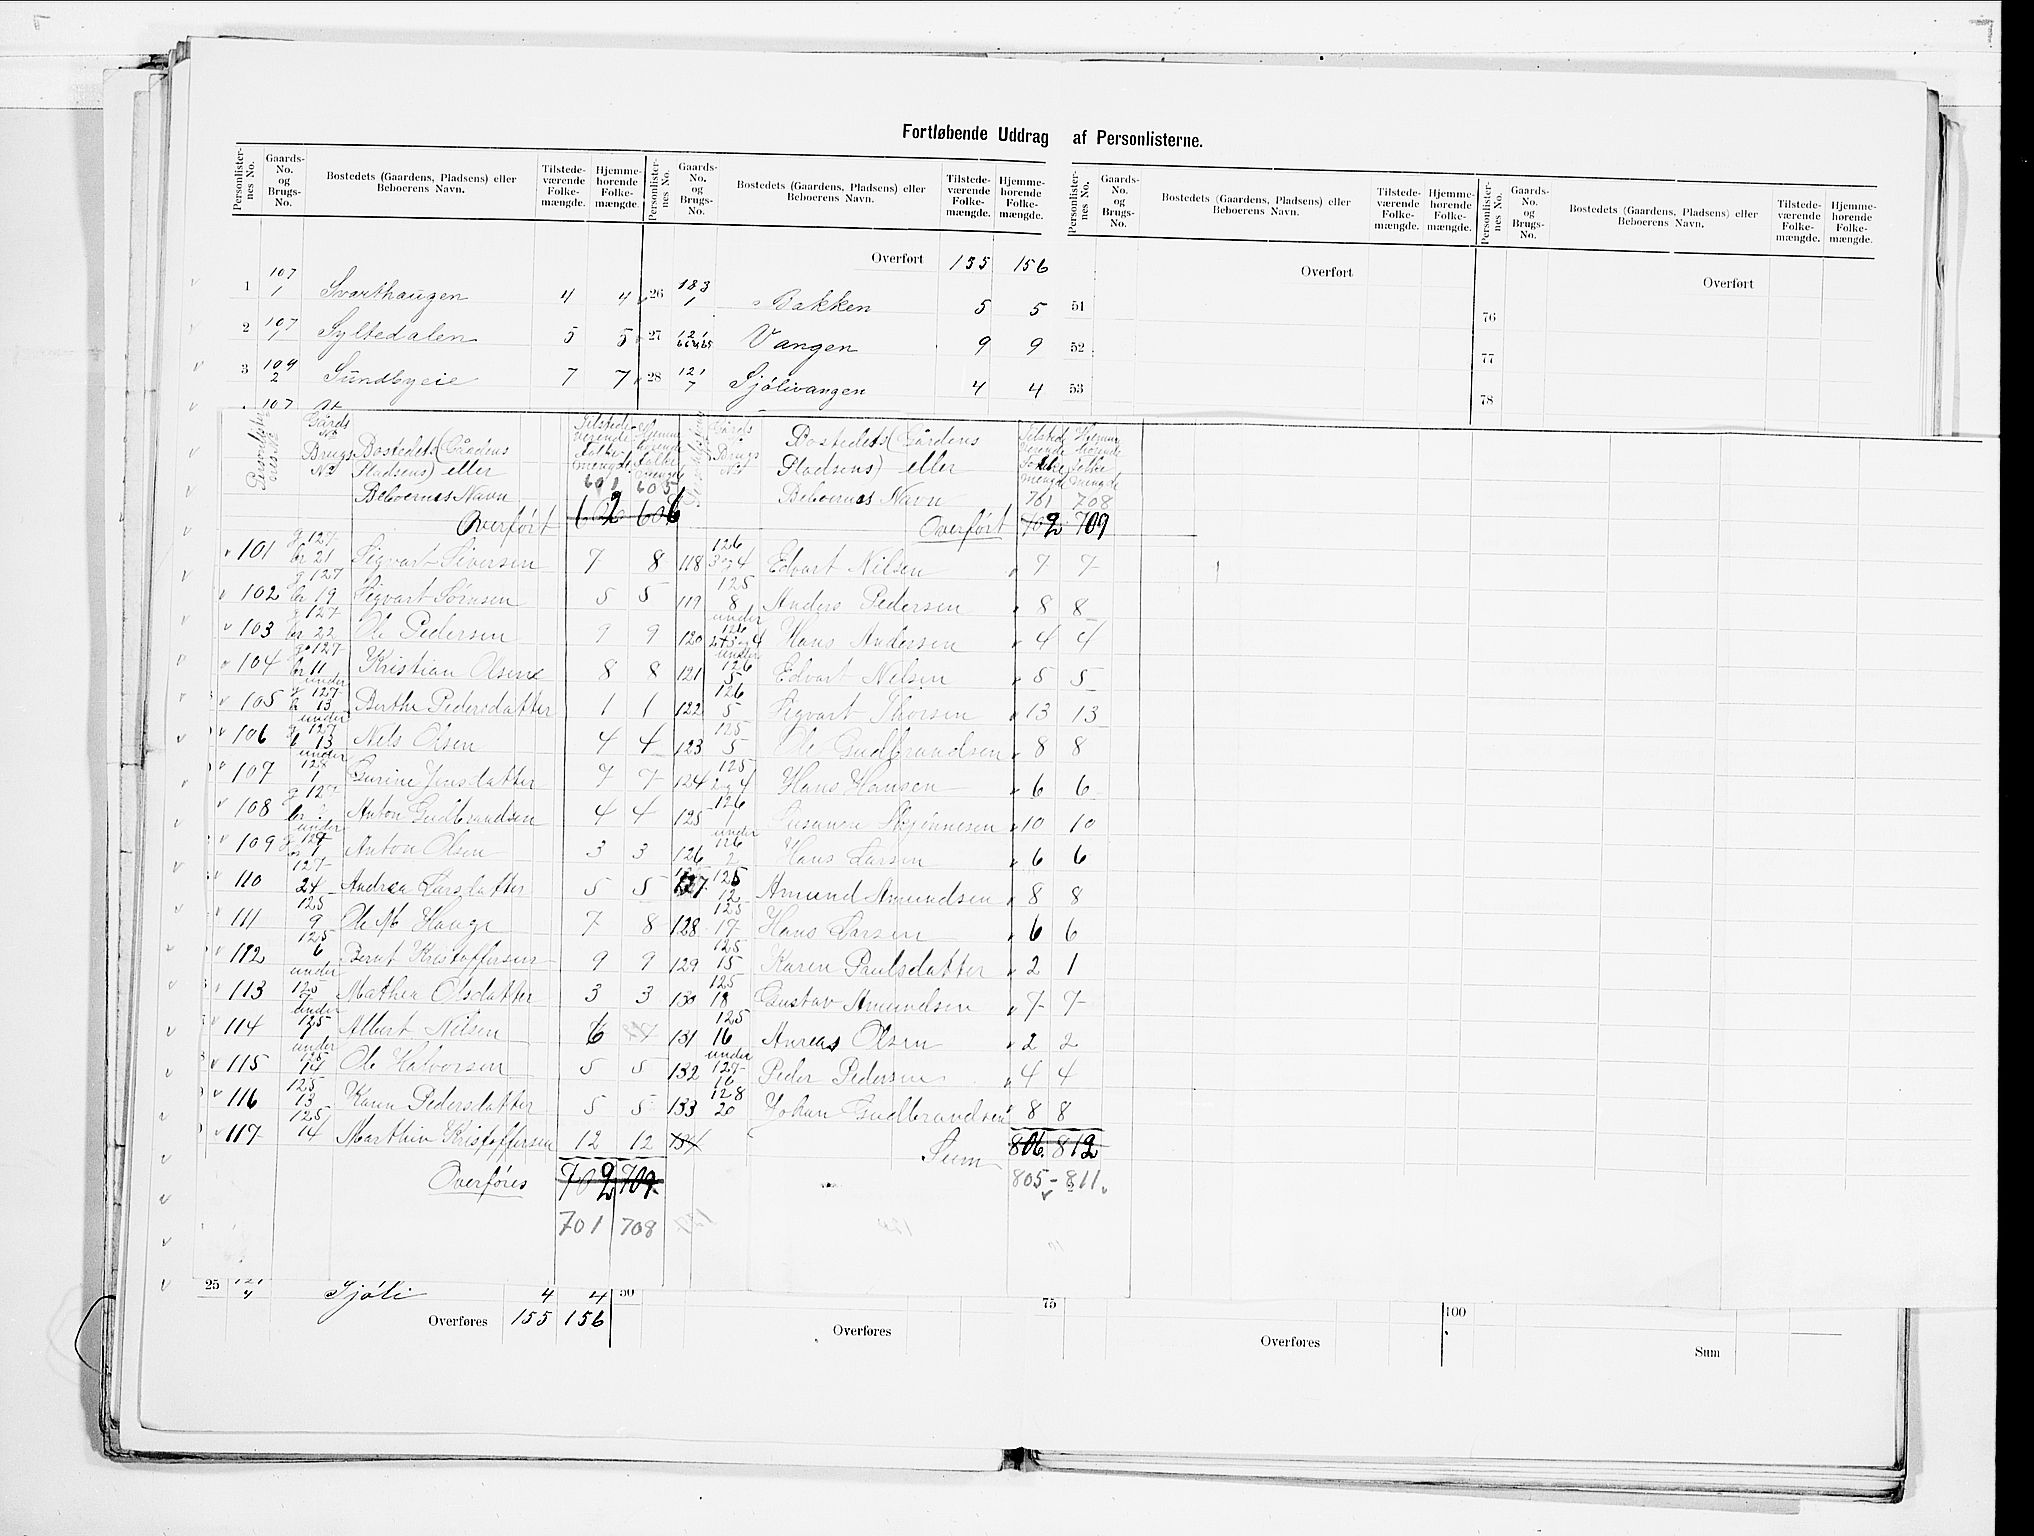 Fortløbende Uddrag af Personlisterne.
Personlister-nes No. Gaards-No. og Brugs-No. Bostedets (Gaardens, Pladsens) eller Beboerens Navn. Tilstede-værende Folke-mængde. Hjemme-hørende Folke-mængde. Personlister-nes No. Gaards-No. og Brugs-No. Bostedets (Gaardens, Pladsens) eller Beboerens Navn. Tilstede-værende Folke-mængde. Hjemme-hørende Folke-mængde. Personlister-nes No. Gaards-No. og Brugs-No. Bostedets (Gaardens, Pladsens) eller Beboerens Navn. Tilstede-værende Folke-mængde. Hjemme-hørende Folke-mængde. Personlister-nes No. Gaards-No. og Brugs-No. Bostedets (Gaardens, Pladsens) eller Beboerens Navn. Tilstede-værende Folke-mængde. Hjemme-hørende Folke-mængde.
Overført 155 156 Overført Overført
1 107/1 Svarthaugen 4 4 26 183/1 Bakken 5 5 51 76
2 107/1 Syltedalen 5 5 27 121 Vangen 9 9 52 77
3 109/2 Sundbyeie 7 7 28 121/7 Sjølivangen 4 4 53 78
107
Gårds No Brugs No Bostedets (Gårdens Pladsens) eller Beboernes Navn Tilstedeværende Folkemengde Hjemmehørende Folkemengde Gårds Brugs No Bostedets (Gårdens Pladsens) eller Beboernes Navn Tilstedeværende Folkemengde Hjemmehørende Folkemengde
601 605 701 708
Overført 602 606 Overført 702 709
101 g 127 br 21 Sigvart Siversen 7 8 118 126 3 og 4 Edvart Nilsen 7 7
102 g 127 br 19 Sigvart Sørnsen 5 5 119 125 8 Anders Pedersen 8 8
103 g 127 br 22 Ole Pedersen 9 9 120 under 126 Hans Andersen 4 4
104 g 127 br 11 Kristian Olsen 8 8 121 under 126 5 Edvart Nilsen 5 5
105 under g 127 13 Berthe Pedersdatter 1 1 122 126 5 Sigvart Thorsen 13 13
106 under g 127 13 Nels Olsen 4 4 123 125 5 Ole Gudbrandsen 8 8
107 under 128 1 Gurine Jensdatter 7 7 124 125 2 og 4 Hans Hansen 6 6
108 g 127 br Anton Gudbrandsen 4 4 125 126 1 Susanna Skjønnesen 10 10
109 under 127 1 Anton Olsen 3 3 126 under 126 2 Hans Larsen 6 6
110 127 24 Andrea Larsdatter 5 5 127 125 12 Amund Amundsen 8 8
111 125 9 Ole M Hauge 7 8 128 125 17 Hans Larsen 6 6
112 125 6 Bernt Kristoffersen 9 9 129 125 15 Karen Paulsdatter 2 1
113 under 125 7 Mathea Olsdatter 3 3 130 125 18 Gustav Amundsen 7 7
114 under 125 1 Albert Nilsen 6 131 125 16 Anreas Olsen 2 2
115 under 125 14 Ole Halvorsen 5 5 132 under 127 16 Peder Pedersen 4 4
116 125 13 Karen Pedersdatter 5 5 133 128 20 Johan Gudbrandsen 8 8
117 125 14 Marthin Kristoffersen 12 12 134 Sum 806 812
Overføres 702 709 805 - 811
701 708
25 121/4 Sjøli 4 4 50 75 100
Overføres 155 156 Overføres Overføres Sum